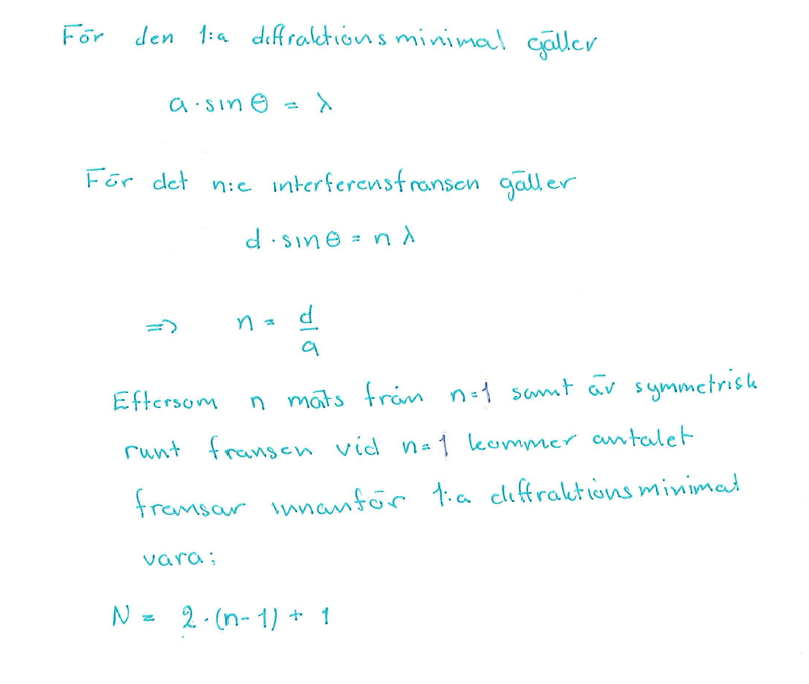 För den 1:a diffraktionsminimal gäller
a · sin θ = λ
För det n:e interferensfransen gäller
d · sin θ = n λ
=> n = d/a
Eftersom n mäts från n=1 samt är symmetrisk
runt fransen vid n=1 kommer antalet
fransar innanför 1:a diffraktionsminimal
vara;
N = 2 · (n-1) + 1